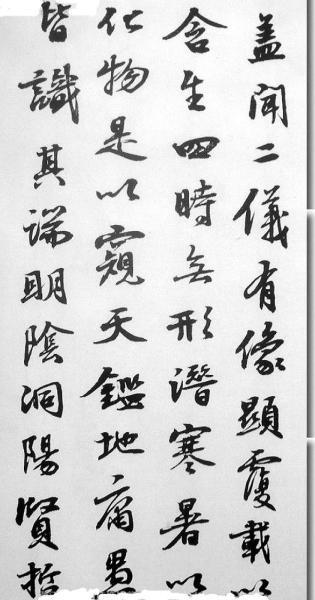 盖聞二儀有像顯覆載以
含生四時無形潛寒暑以
化物是以窺天鑑地庸愚
皆識其端明陰洞陽賢哲